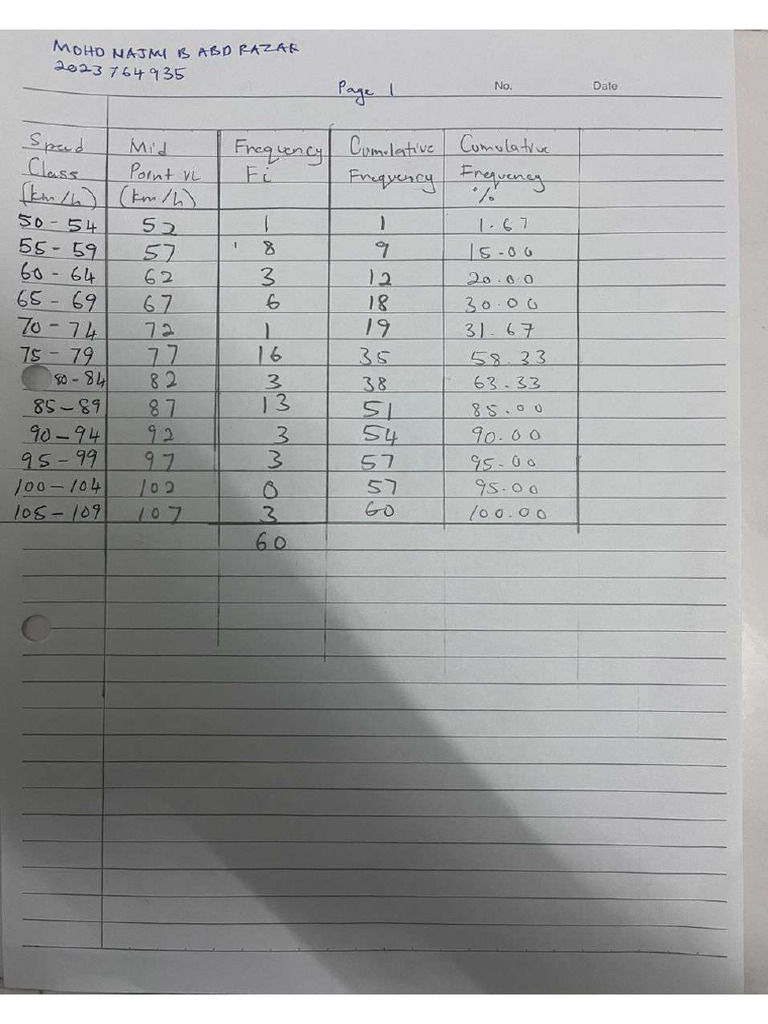 MOHD NAJMI B ABD RAZAK
2023764935
Page 1 No. Date
Speed Mid Frequency Cumulative Cumulative
Class Point vi Fi Frequency Frequency
(km/h) (km/h) %
50 - 54 52 1 1 1.67
55 - 59 57 8 9 15.00
60 - 64 62 3 12 20.00
65 - 69 67 6 18 30.00
70 - 74 72 1 19 31.67
75 - 79 77 16 35 58.33
80 - 84 82 3 38 63.33
85 - 89 87 13 51 85.00
90 - 94 92 3 54 90.00
95 - 99 97 3 57 95.00
100 - 104 102 0 57 95.00
105 - 109 107 3 60 100.00
60